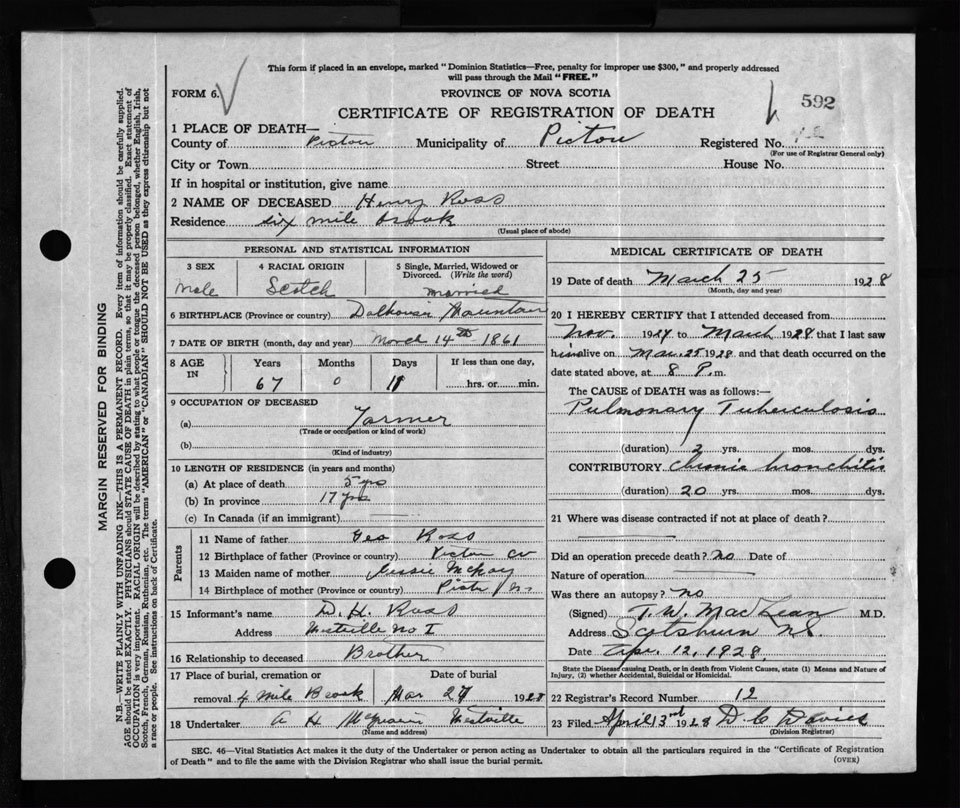 This form if placed in an envelope, marked "Dominion Statistics—Free, penalty for improper use $300," and properly addressed
will pass through the Mail "FREE."
FORM 6.
PROVINCE OF NOVA SCOTIA
592
CERTIFICATE OF REGISTRATION OF DEATH
1 PLACE OF DEATH—
County of Pictou Municipality of Pictou Registered No.
(For use of Registrar General only)
City or Town Street House No.
If in hospital or institution, give name
2 NAME OF DECEASED Henry Ross
Residence six mile brook
(Usual place of abode)
PERSONAL AND STATISTICAL INFORMATION
3 SEX
Male
4 RACIAL ORIGIN
Scotch
5 Single, Married, Widowed or
Divorced. (Write the word)
married
6 BIRTHPLACE (Province or country) Dalhousie Mountain
7 DATE OF BIRTH (month, day and year) March 14th 1861
8 AGE
IN
Years
67
Months
0
Days
11
If less than one day,
hrs. or min.
9 OCCUPATION OF DECEASED
(a) Farmer
(Trade or occupation or kind of work)
(b)
(Kind of industry)
10 LENGTH OF RESIDENCE (in years and months)
(a) At place of death 5 yrs
(b) In province 17 yrs
(c) In Canada (if an immigrant)
Parents
11 Name of father Geo Ross
12 Birthplace of father (Province or country) Pictou Co
13 Maiden name of mother Jessie McKay
14 Birthplace of mother (Province or country)
15 Informant's name D. H. Ross
Address No I
16 Relationship to deceased Brother
17 Place of burial, cremation or
removal 4 Mile Brook
Date of burial
Mar 27 1928
18 Undertaker A H Westville
(Name and address)
MEDICAL CERTIFICATE OF DEATH
19 Date of death March 25 1928
(Month, day and year)
20 I HEREBY CERTIFY that I attended deceased from
Nov. 19 to March 1928 that I last saw
him alive on Mar. 25 1928 and that death occurred on
date stated above, at 8 P.m.
The CAUSE of DEATH was as follows:—
Pulmonary Tuberculosis
(duration) 2 yrs. mos. dys.
CONTRIBUTORY Chronic bronchitis
(duration) 20 yrs. mos. dys.
21 Where was disease contracted if not at place of death?
Did an operation precede death? no Date of
Nature of operation
Was there an autopsy? no
(Signed) T. W. MacLean M.D.
Address Scotsburn N.S.
Date Apr. 12, 1928
State the Disease causing Death, or in death from Violent Causes, state (1) Means and Nature of
Injury, and (2) whether Accidental, Suicidal or Homicidal.
22 Registrar's Record Number 12
23 Filed April 13rd 1928 D. C. Davies
(Division Registrar)
SEC. 46—Vital Statistics Act makes it the duty of the Undertaker or person acting as Undertaker to obtain all the particulars required in the "Certificate of Registration
of Death" and to file the same with the Division Registrar who shall issue the burial permit.
(OVER)
MARGIN RESERVED FOR BINDING
N.B.—WRITE PLAINLY WITH UNFADING INK—THIS IS A PERMANENT RECORD. Every item of information should be carefully supplied.
AGE should be stated EXACTLY. PHYSICIANS should STATE CAUSE OF DEATH in plain terms, so that it may be properly classified. Exact statement of
OCCUPATION is very important. RACIAL ORIGIN will be described by stating to what people or tongue the deceased person belonged, whether English, Irish,
Scotch, French, German, Russian, Ruthenian, etc. The terms "AMERICAN" or "CANADIAN" SHOULD NOT BE USED as they express citizenship but not
a race or people. See instructions on back of Certificate.